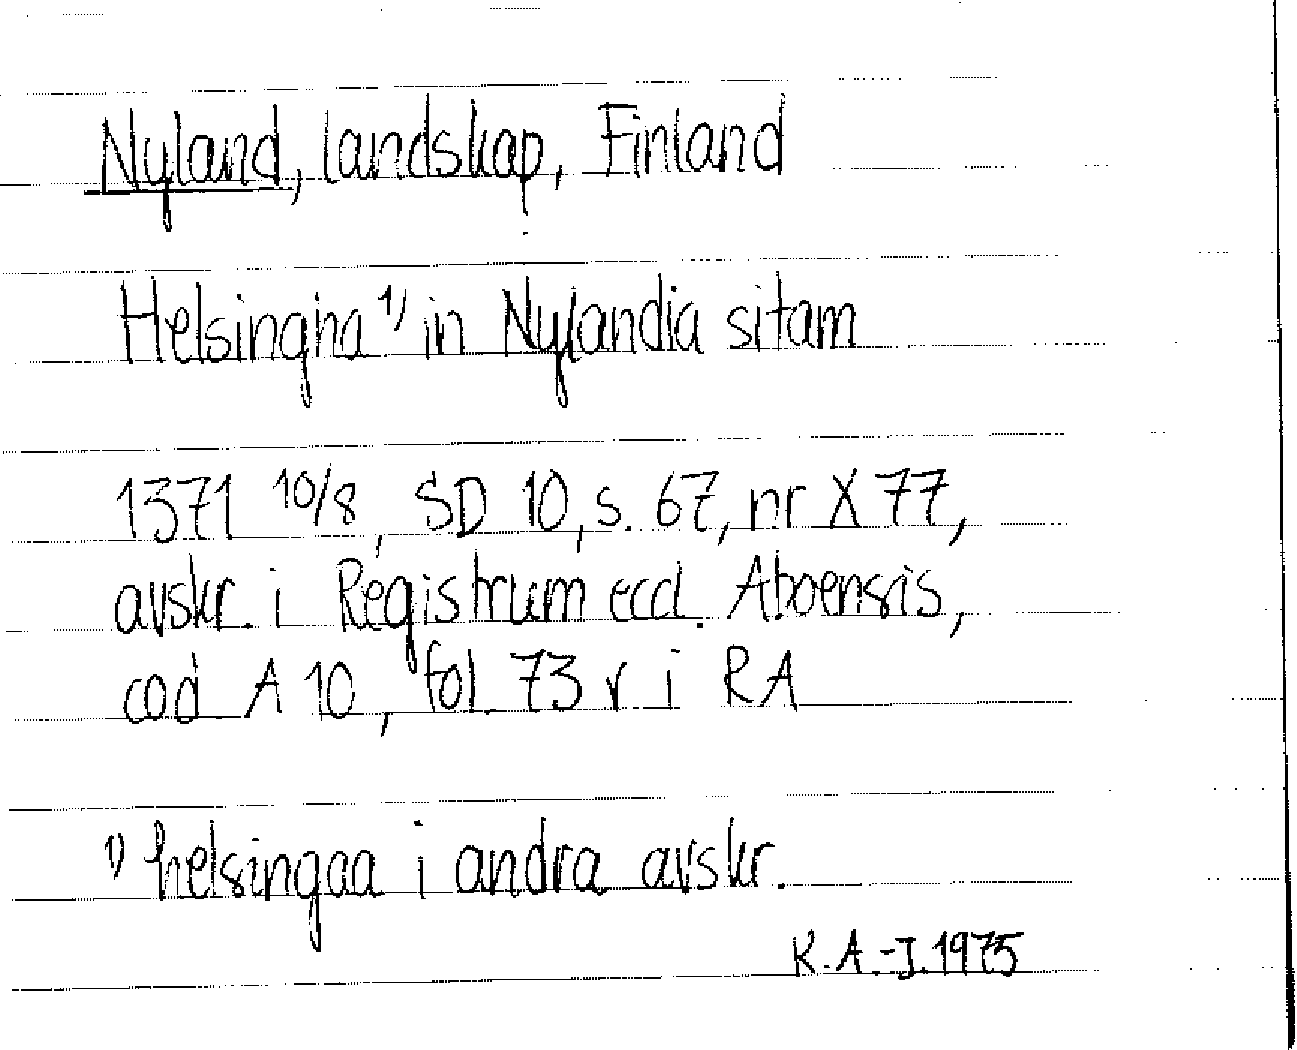 Nyland, landskap, Finland
Helsingha 1) in Nylandia sitam
1371 10/8, SD 10, s. 67, nr X 77,
avskr. i Registrum eccl. Aboensis,
cod A 10, fol. 73 r i RA
1) helsingaa i andra avskr.
K.A.-J. 1975